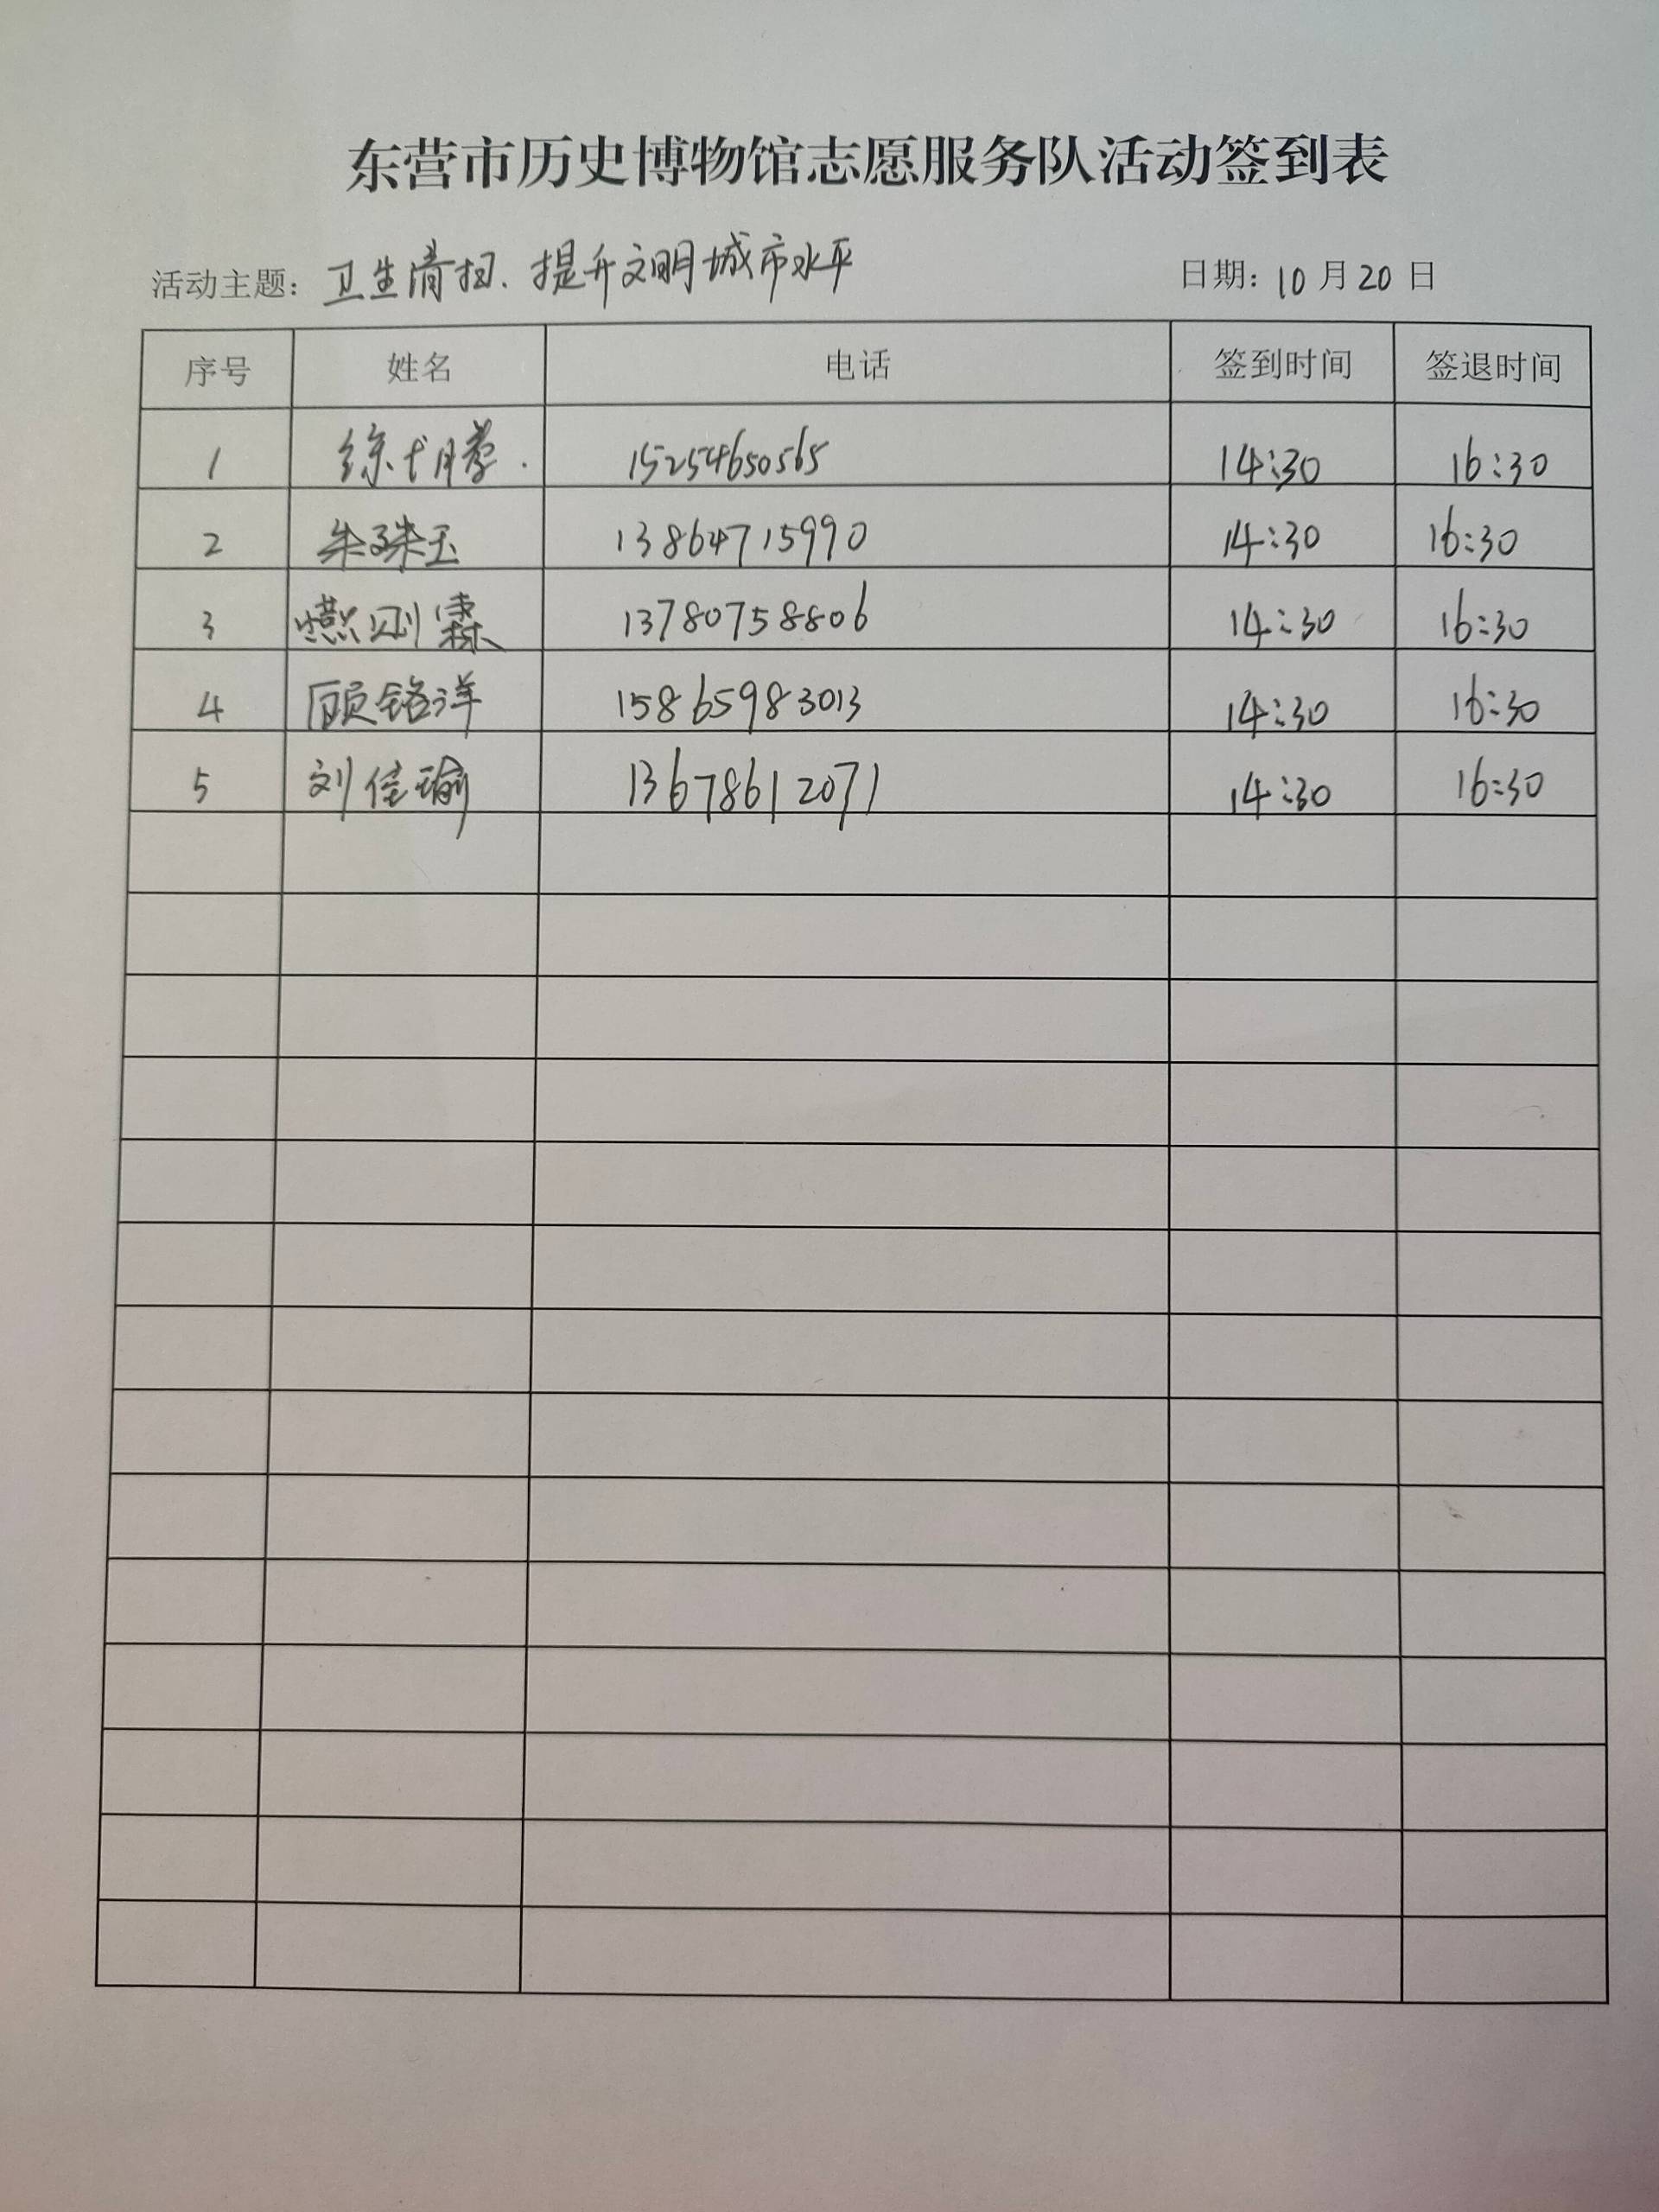 东营市历史博物馆志愿服务队活动签到表
活动主题: 卫生清扫、提升文明城市水平 日期: 10 月 20 日
序号 姓名 电话 签到时间 签退时间
1 15254650565 14:30 16:30
2 朱珠玉 13864715990 14:30 16:30
3 13780758806 14:30 16:30
4 顾铭洋 15865983013 14:30 16:30
5 刘佳瑜 13678612071 14:30 16:30